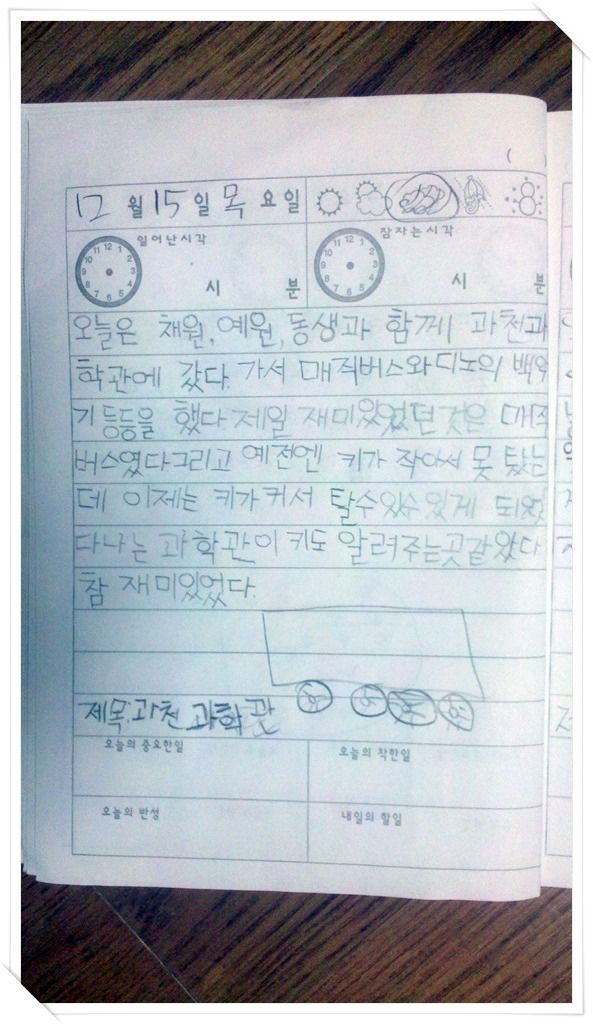 12 월 15 일 목 요일
일어난시각 잠자는시각
12 1 2 3 4 5 6 7 8 9 10 11 12 1 2 3 4 5 6 7 8 9 10 11
시 분 시 분
오늘은 채원, 예원, 동생과 함께 과천과
학관에 갔다. 가서 매직버스와 디노의 백악
기 등등을 했다 제일 재미있었던 것은 매직
버스였다 그리고 예전엔 키가 작아서 못 탔는
데 이제는 키가 커서 탈수있수있게 되었
다 나는 과학관이 키도 알려주는곳 같았다
참 재미있었다.
제목: 과천 과학관
오늘의 중요한일 오늘의 착한일
오늘의 반성 내일의 할일